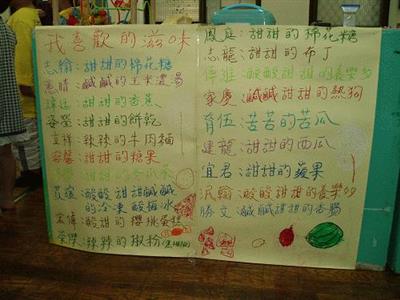 我喜歡的滋味
志翰:甜甜的棉花糖
:鹹鹹的玉米濃湯
:甜甜的香蕉
姿瑩:甜甜的餅乾
立祥:辣辣的牛肉麵
:甜甜的糖果
:酸酸甜甜鹹鹹
的冷凍酸梅冰
宏偉:甜甜的櫻桃蛋糕
榮傑:辣辣的椒粉
鳳庭:甜甜的棉花糖
志龍:甜甜的布丁
:酸酸甜甜的養樂多
家慶:鹹鹹甜甜的熱狗
育伍:苦苦的苦瓜
建龍:甜甜的西瓜
宜君:甜甜的蘋果
汎翰:酸酸甜甜的養樂多
勝文:鹹鹹甜甜的香腸